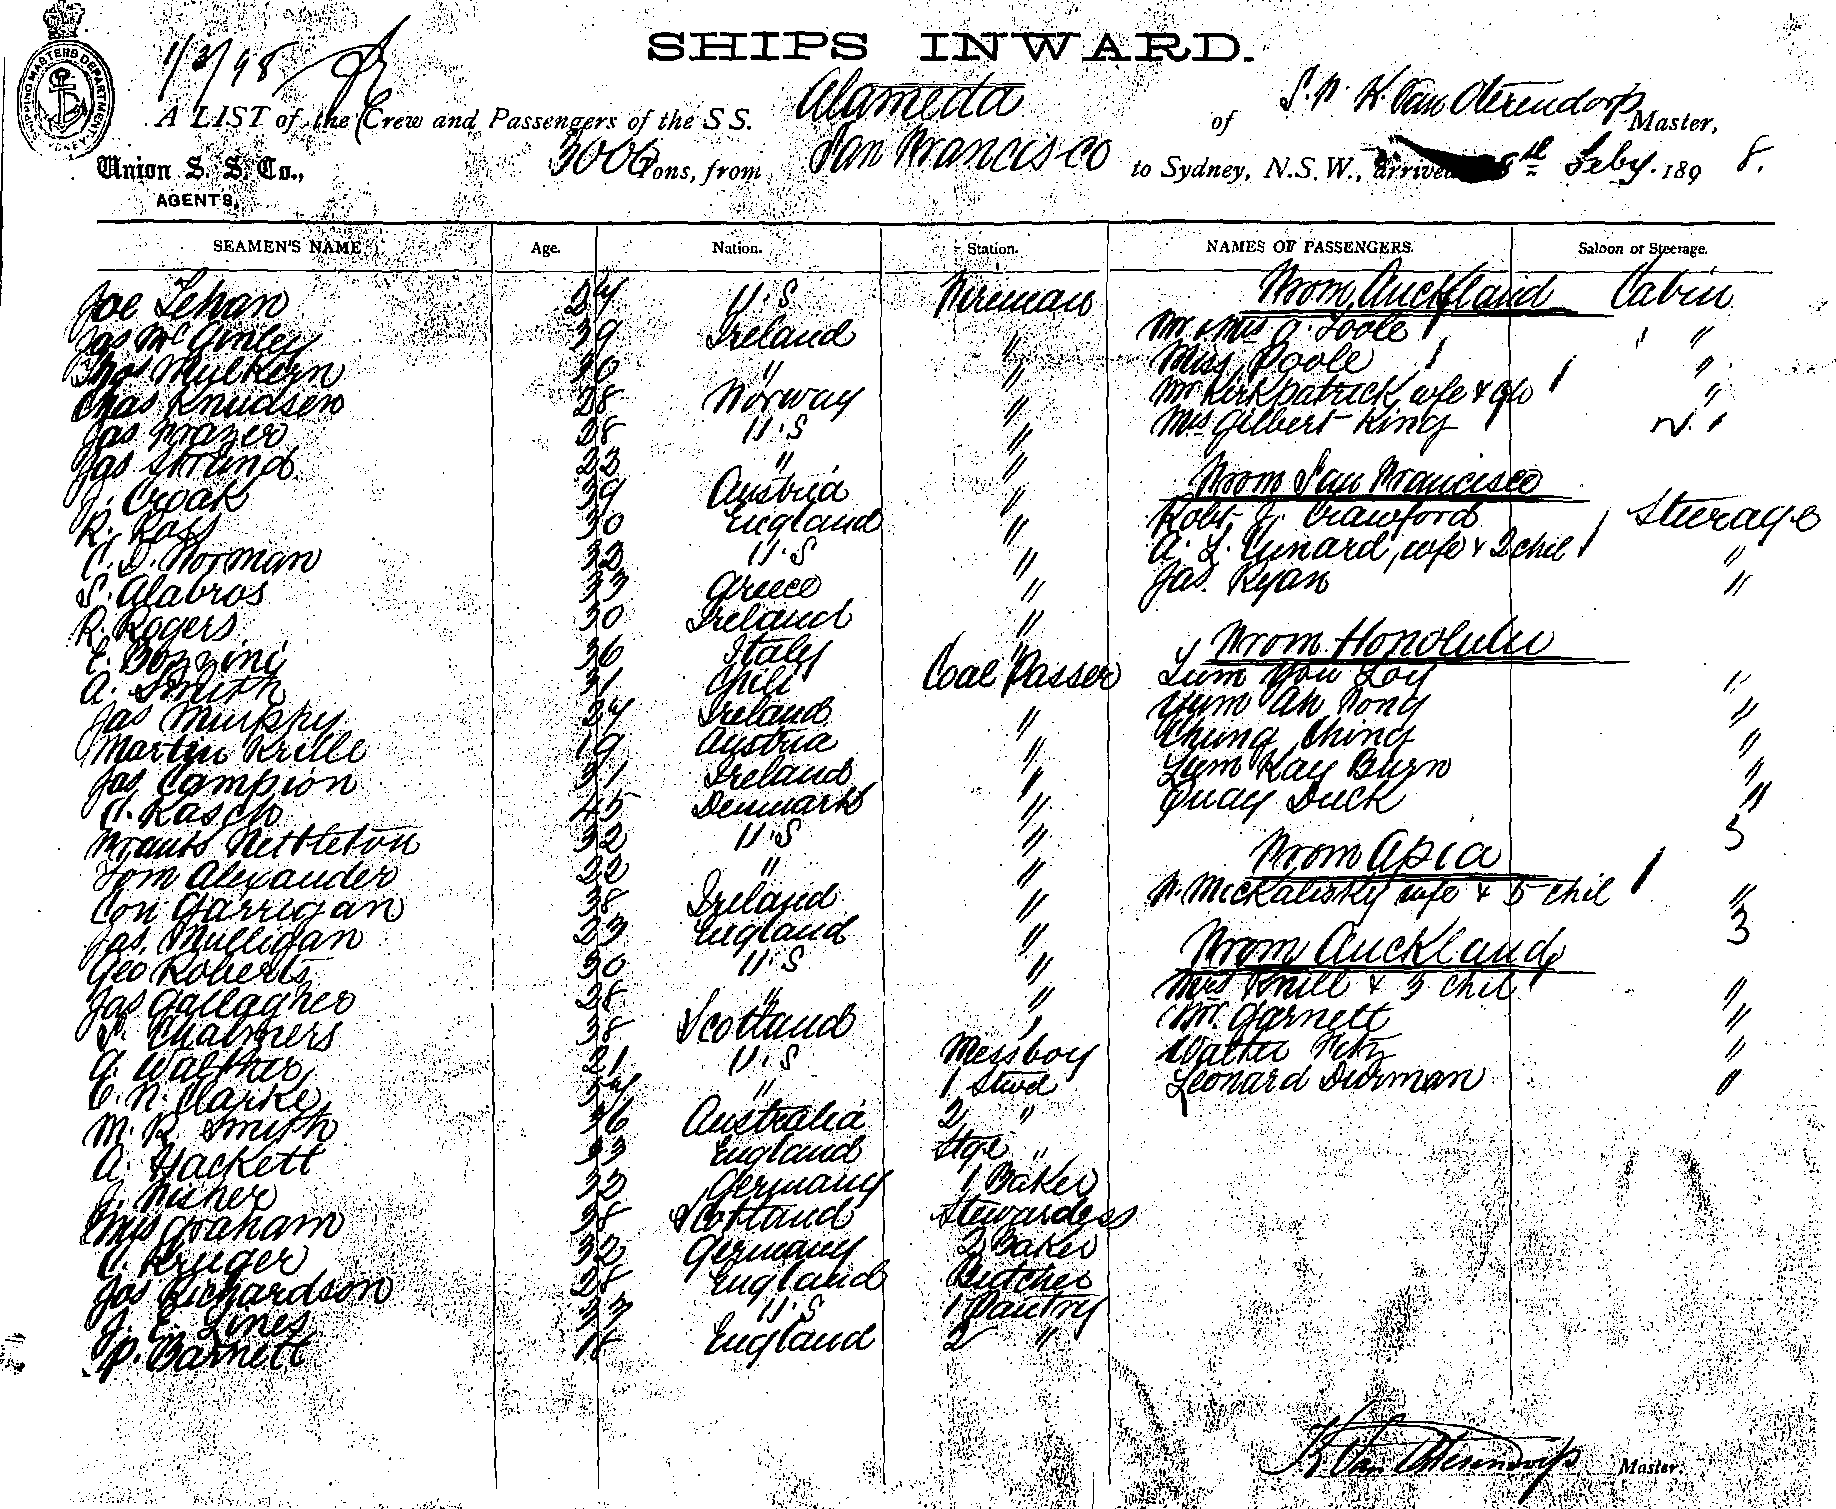 SHIPPING MASTERS DEPARTMENT SYDNEY
1/3/98
SHIPS INWARD.
A LIST of the Crew and Passengers of the S S. Alameda of S.F. H. Van Oterendorp Master,
Union S. S. Co., AGENTS, 3000 Tons, from San Francisco to Sydney, N.S.W., arrived 8th Feby. 1898.
SEAMEN'S NAME Age. Nation. Station. NAMES OF PASSENGERS. Saloon or Steerage.
Joe Lehan 24 U.S Fireman From Auckland Cabin
Jas McGinley 39 Ireland " Mr & Mrs J. Poole "
Thos Mulkern 36 " " Miss Poole "
Chas Knudsen 28 Norway " Mr Kirkpatrick, wife & "
Jas Frazer 28 U.S " Mrs Gilbert King "
Jas Strand 23 " " From San Francisco
J. Croak 39 Austria " Robt J. Crawford Steerage
R. Ross 30 England " A. L. Cunard, wife & 2 chil "
C. D. Norman 32 U.S " Jas. Ryan "
S. Alabros 33 Greece "
R. Rogers 30 Ireland " From Honolulu
E. Bozzini 36 Italy " Lum You Loy "
A. Smith 31 Chili Coal Passer Yum Ah Fong "
Jas Murphy 34 Ireland " Chung Ching "
Martin Krille 19 Austria " Lum Kay Burn "
Jas Campion 31 Ireland " Quay Duck "
C. Rasch 45 Denmark "
Frank Nettleton 32 U.S " From Apia 3
Tom Alexander 22 " " wife & 5 chil "
Con Garrigan 38 Ireland " 3
Jas. Mulligan 33 England " From Auckland
Geo Roberts 30 U.S " Mrs Knill & 3 chil "
Jas Gallagher 28 " " Mr. Garnett "
Chalmers 38 Scotland " Walter "
A. Walther 21 U.S Messboy Leonard Durman "
C. N. Clarke 34 " 1 Stwd
M. R. Smith 36 Australia 2 "
A. Hackett 33 England Stge "
J. Wicher 32 Germany 1 Baker
Mrs Graham 38 Scotland Stewardess
C. Kruger 32 Germany 2 Baker
Jas Richardson 28 England Butcher
J. E. Lines 33 U.S 1 Pantry
P. Barnett 18 England 2 "
H Van Oterendorp Master.